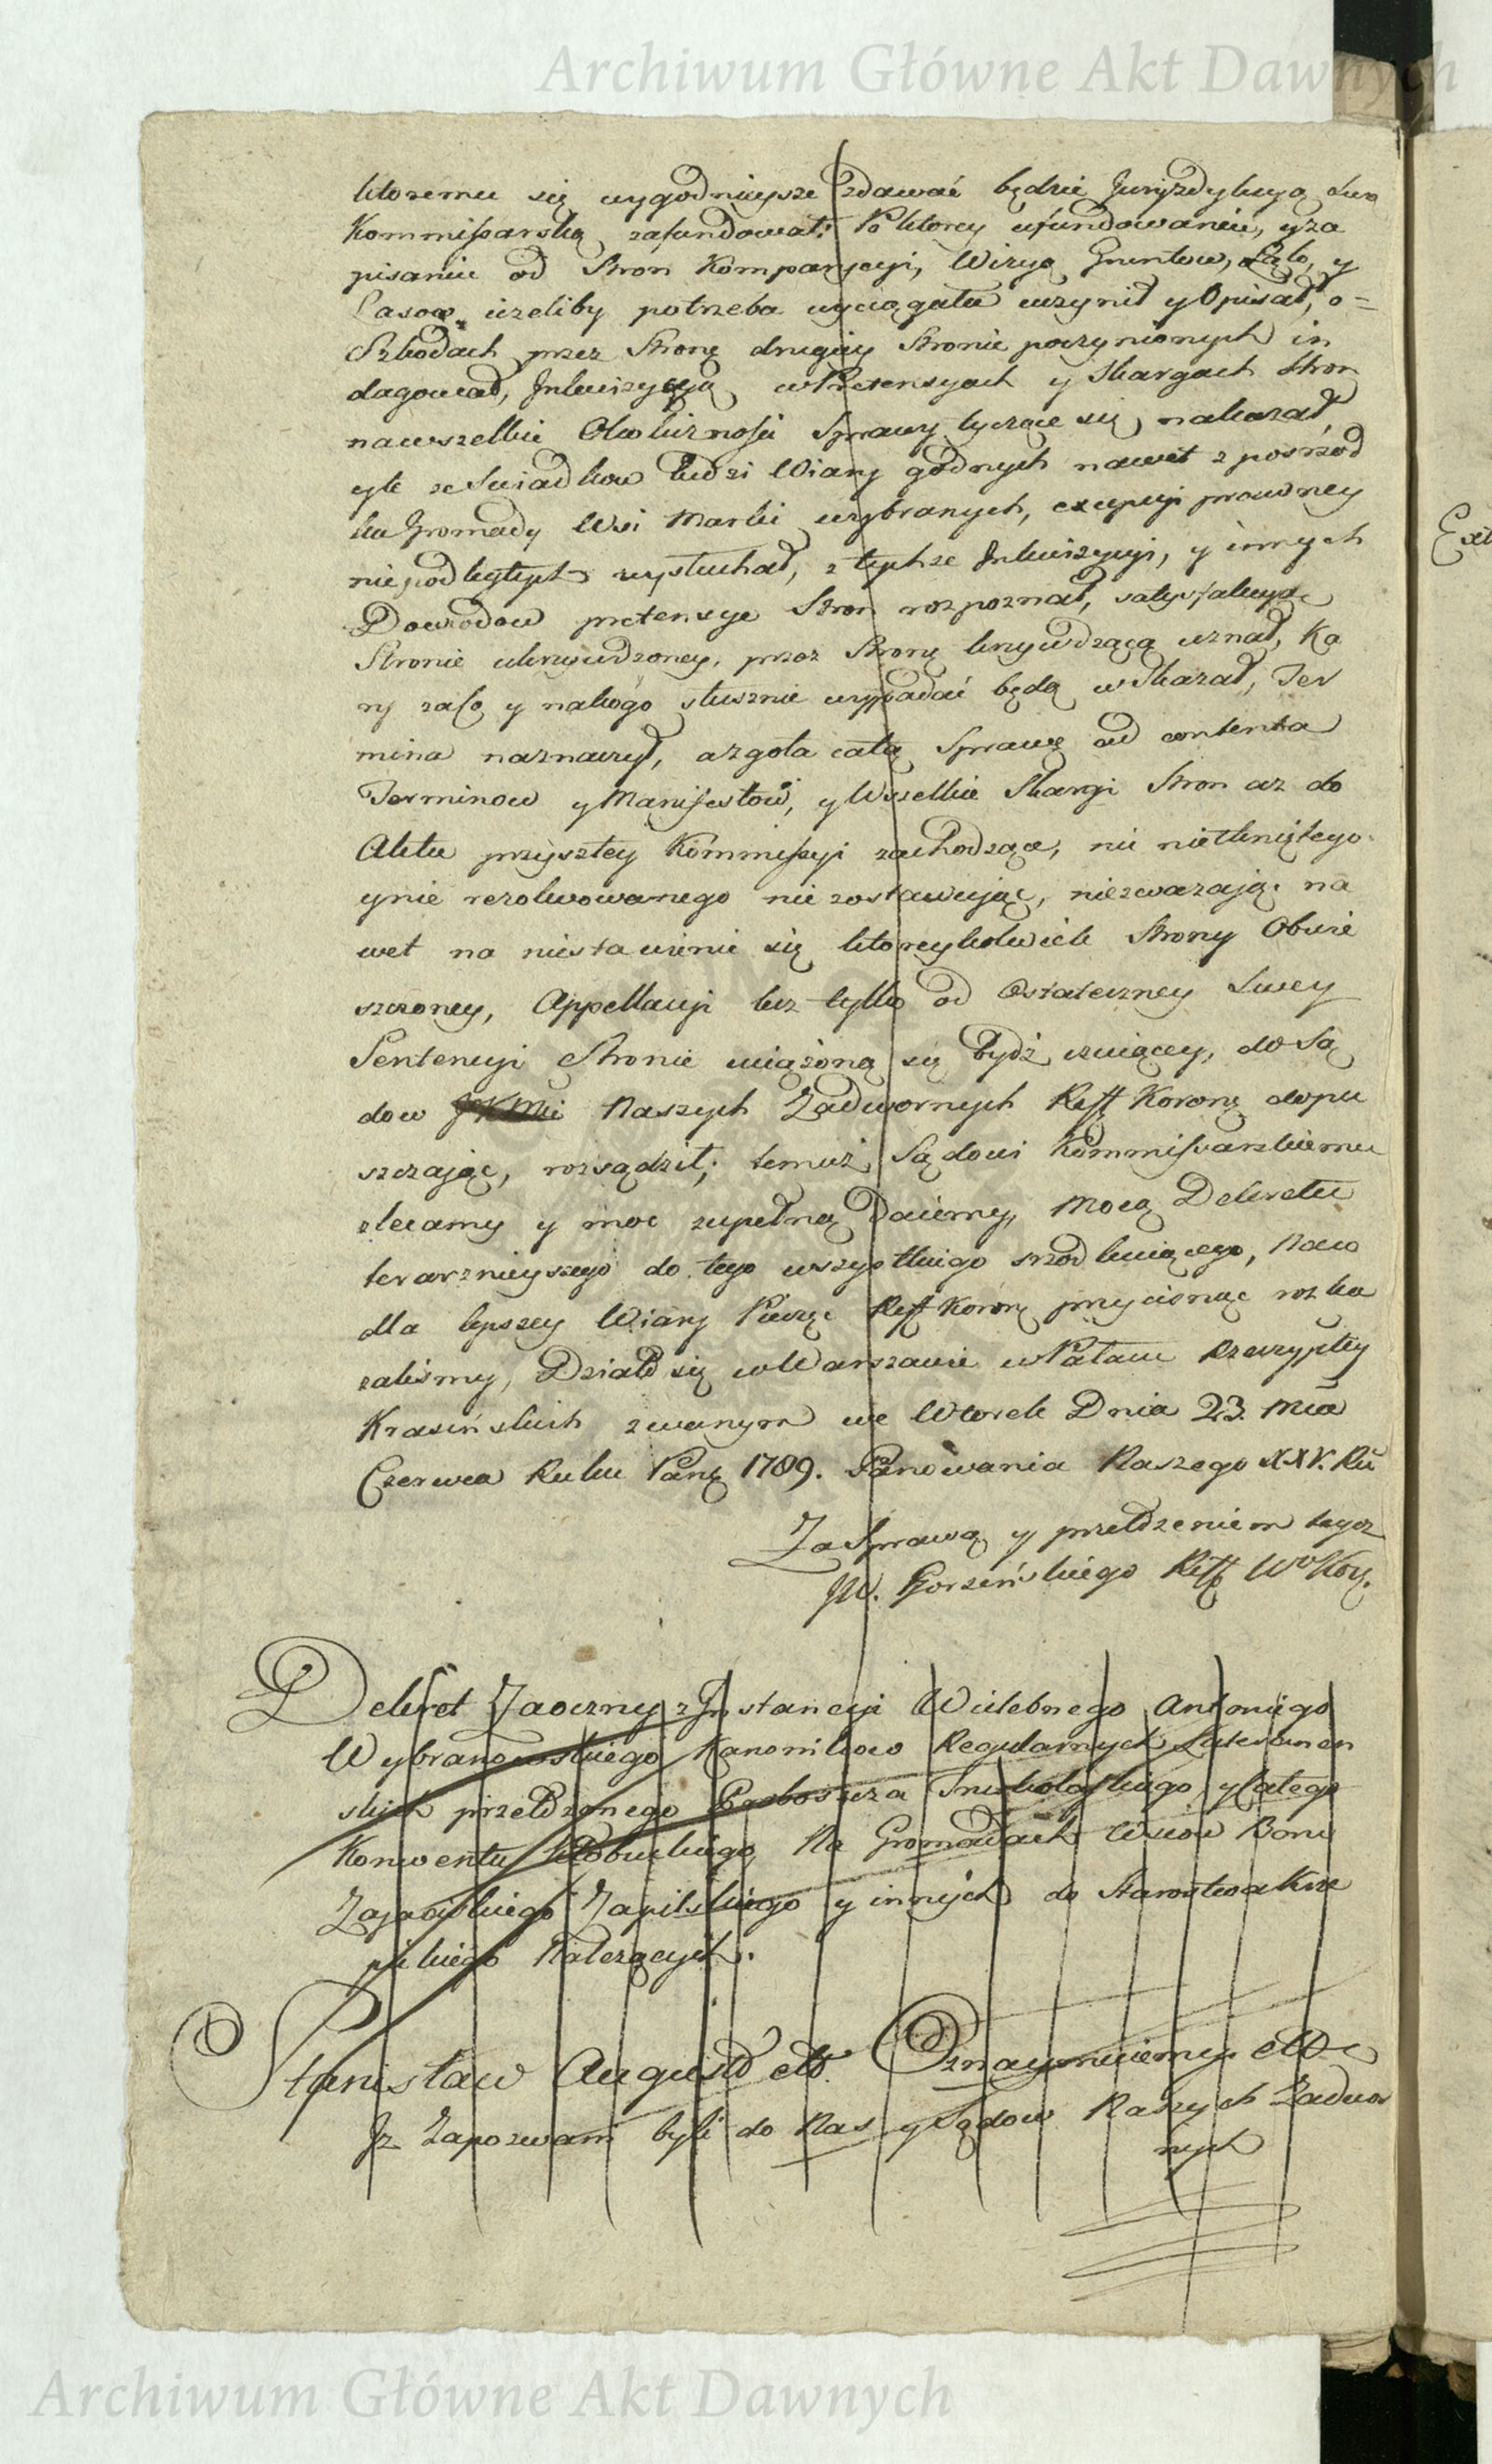 Archiwum Główne Akt Dawnych
ktoremu się wygodnieysze zdawać będzie Juryzdykcyą swą
Kommissarską zafundował: Po ktorey ufundowaniu, y za
pisaniu od Stron Komparycyi, Wizyą Gruntow, Łąk, y
Lasow ieżeliby potrzeba wyciągała uczynił y Opisał, o=
Szkodach przez Stronę drugiey Stronie poczynionych in
dagował, Inkwizycyą w Pretensyach y Skargach Stron
na wszelkie Okoliczności Sprawy tyczące się nakazał,
tyle ze Swiadkow Ludzi Wiary godnych nawet z posrzod
ku Gromady Wsi Marki wybranych, excepcyi prawney
niepodległych wysłuchał, z tychże Inkwizycyi, y innych
Dowodow pretensye Stron rozpoznał, satysfakcyą
Stronie ukrzywdzoney, przez Stronę krzywdzącą uznał, Ka
ry zaś y na kogo słusznie wypadać będą wskazał, Ter
mina naznaczył, a zgoła całą Sprawę ad contenta
Terminow y Manifestow, y Wszelkie Skargi Stron aż do
Aktu przyszłey Kommissyi zachodzące, nic nietkniętego
y nie rezolwowanego nie zostawuiąc, niezważaiąc na
wet na niestawienie się ktoreykolwiek Strony Obwie
szczoney, Appellacyi lecz tylko od Ostateczney Swey
Sentencyi Stronie uciążoną się bydź czuiącey, do Są
dow Naszych Zadwornych Reff Koronę dopu
szczaiąc, rozsądził; temuż Sądowi Kommissarskiemu
zlecamy y moc zupełną Daiemy, Mocą Dekretu
teraznieyszego do tego wszystkiego
dla lepszey Wiary Pieczęć Reff Koronę przycisnąć rozka
zaliśmy, Działo się w Warszawie w Pałacu Rzeczyptey
Krasińskich zwanym we Wtorek Dnia 23. Mca
Czerwca Roku Pang 1789. Panowania Naszego XXV. Ru
Za Sprawą y przełożeniem tegoż
JW. Gorzeńskiego Reff Wo Kor.
Dekret Zaoczny z Instancyi Wielebnego Antoniego
Wybranowskiego Kanonikow Regularnych Lateranen
skich przełożonego Proboszcza y całego
Konwentu Kłobuckiego, Na Gromadach Wsiow Boru
Zajacińskiego Zapilskiego y innych do Starostwa Krze
pickiego Należących.
Stanisław August etc. Oznaymuiemy etc
Iż Zapozwani byli do Nas y Sądow Naszych Zadwor
nych
Archiwum Główne Akt Dawnych